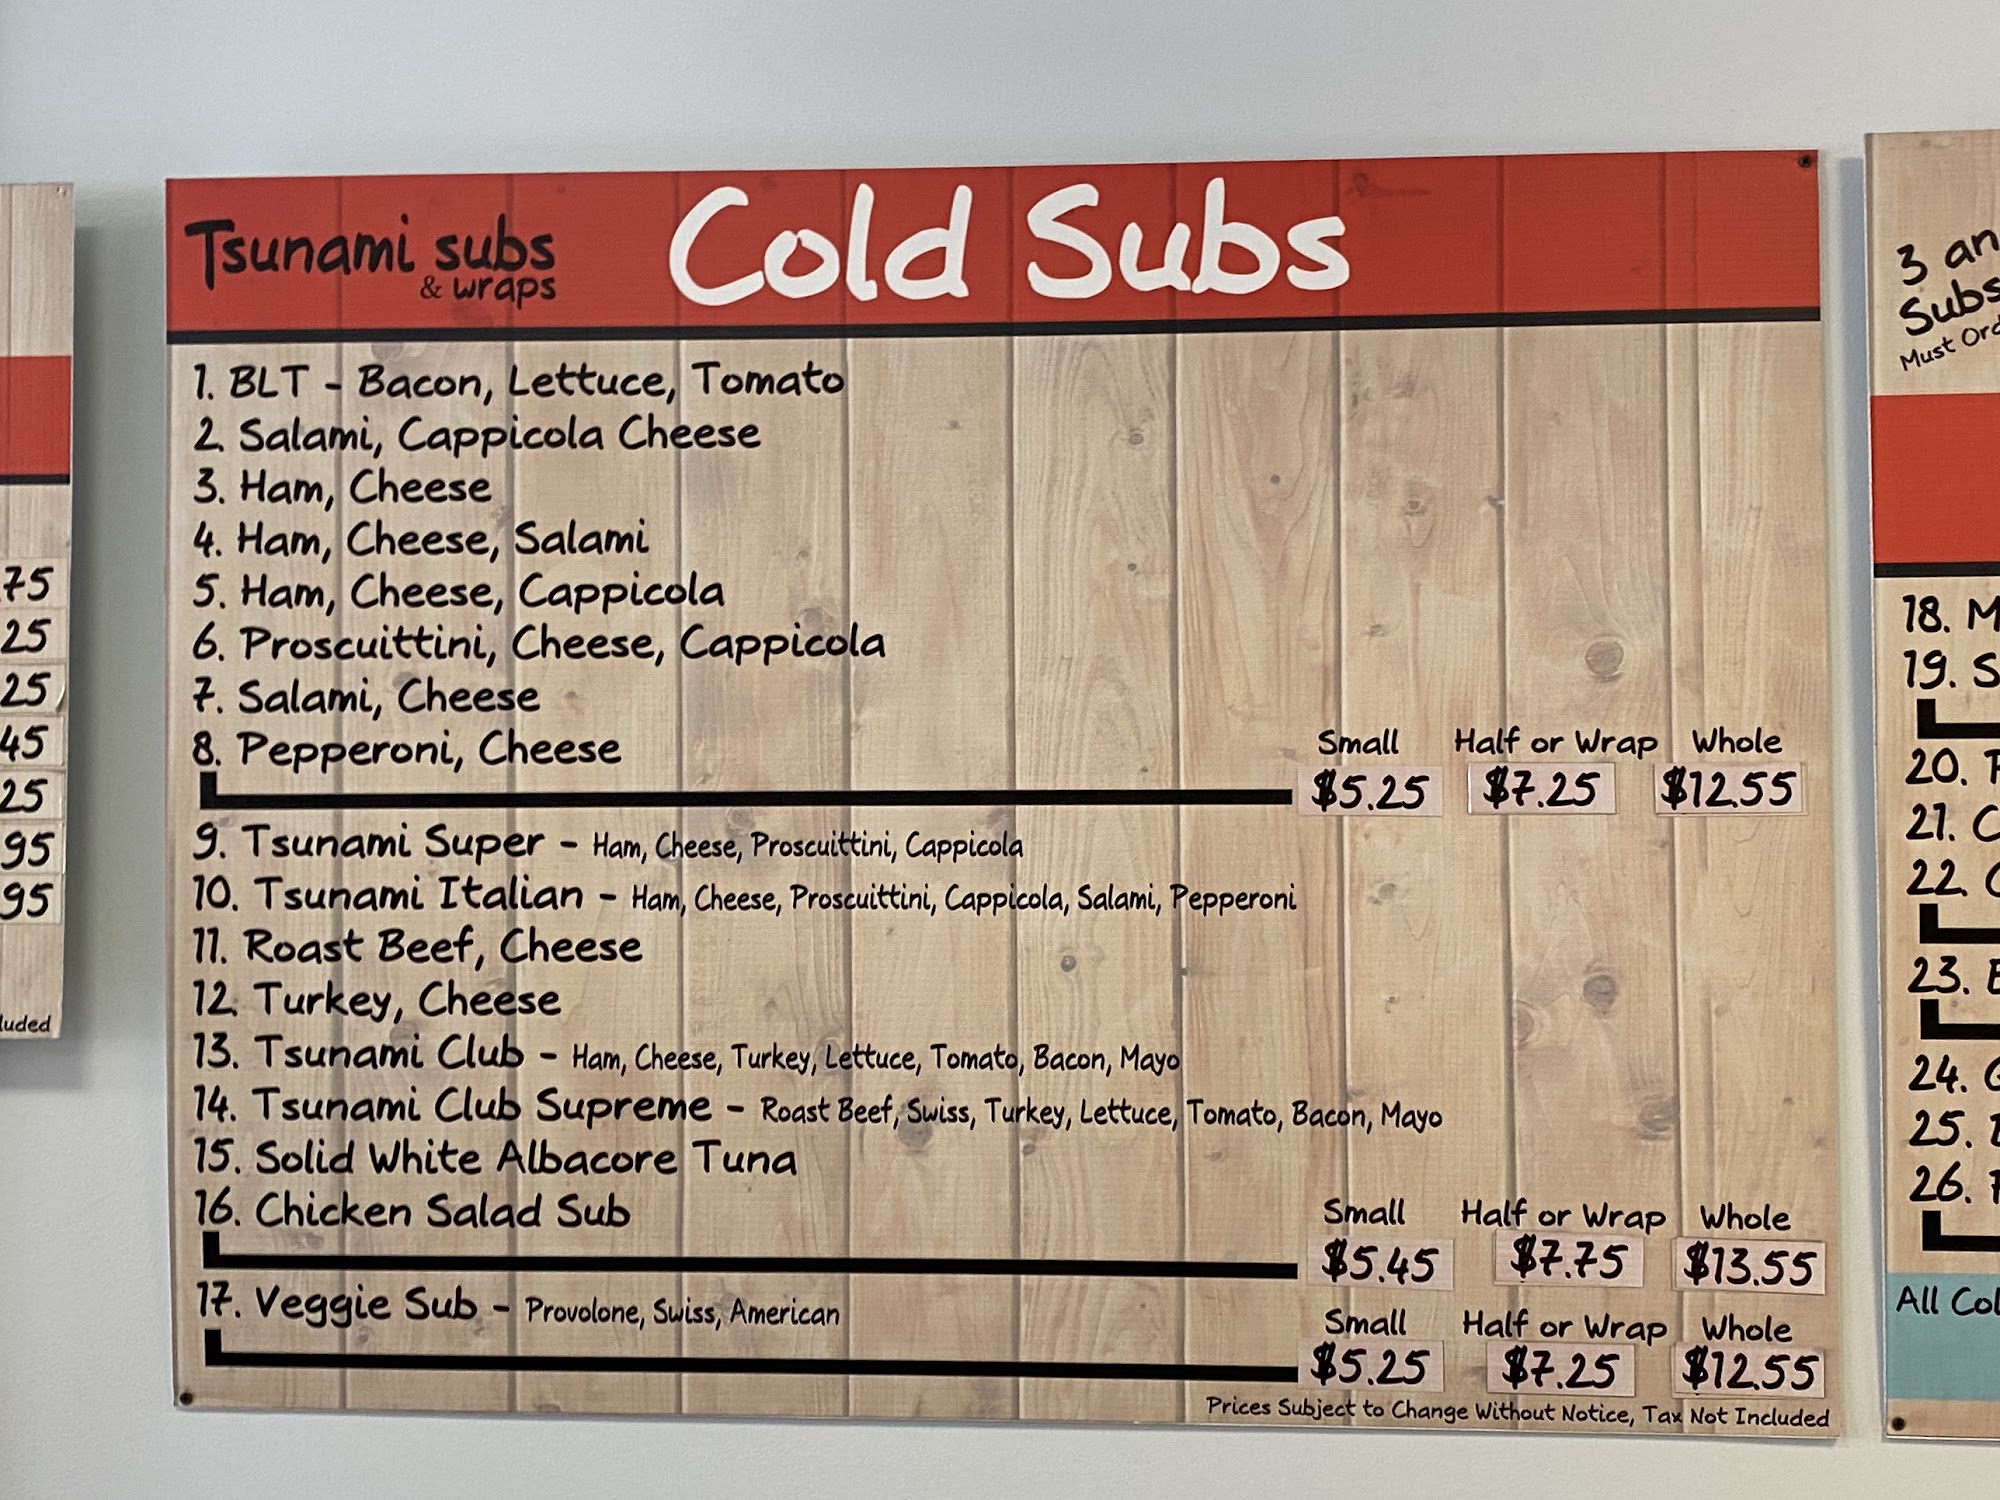 Tsunami subs
& wraps
Cold Subs
1. BLT - Bacon, Lettuce, Tomato
2. Salami, Cappicola Cheese
3. Ham, Cheese
4. Ham, Cheese, Salami
5. Ham, Cheese, Cappicola
6. Proscuittini, Cheese, Cappicola
7. Salami, Cheese
8. Pepperoni, Cheese
Small Half or Wrap Whole
$5.25 $7.25 $12.55
9. Tsunami Super - Ham, Cheese, Proscuittini, Cappicola
10. Tsunami Italian - Ham, Cheese, Proscuittini, Cappicola, Salami, Pepperoni
11. Roast Beef, Cheese
12. Turkey, Cheese
13. Tsunami Club - Ham, Cheese, Turkey, Lettuce, Tomato, Bacon, Mayo
14. Tsunami Club Supreme - Roast Beef, Swiss, Turkey, Lettuce, Tomato, Bacon, Mayo
15. Solid White Albacore Tuna
16. Chicken Salad Sub
Small Half or Wrap Whole
$5.45 $7.75 $13.55
17. Veggie Sub - Provolone, Swiss, American
Small Half or Wrap Whole
$5.25 $7.25 $12.55
Prices Subject to Change Without Notice, Tax Not Included
75
25
25
45
25
95
95
3
Subs
Must
18.
19.
20.
21.
22.
23.
24.
25.
26.
All